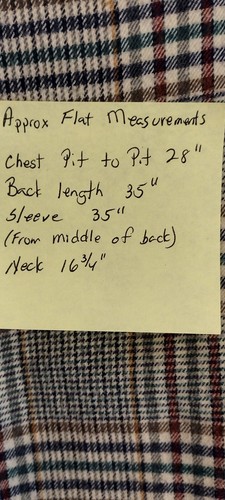 Approx Flat Measurements
Chest Pit to Pit 28"
Back length 35"
Sleeve 35"
(From middle of back)
Neck 16 3/4"